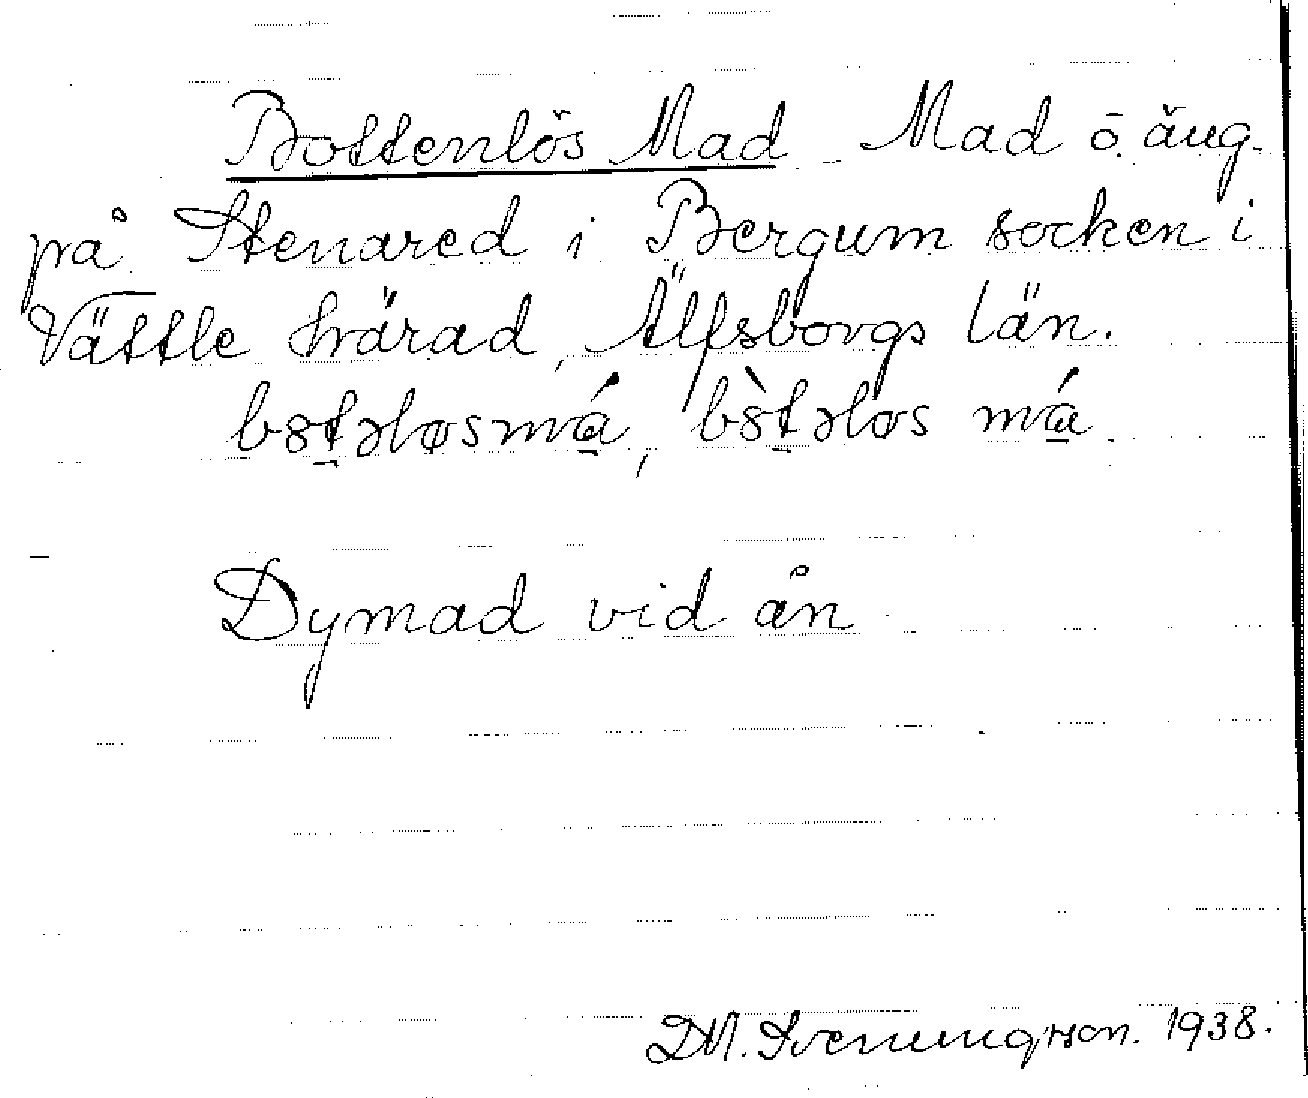 Bottenlös Mad Mad o. äng
på Stenared i Bergum socken i
Vättle härad, Älfsborgs län.
bꝏtələsmá, bꝏ̀tələs má
Dymad vid ån
D.M. Sveningsson. 1938.